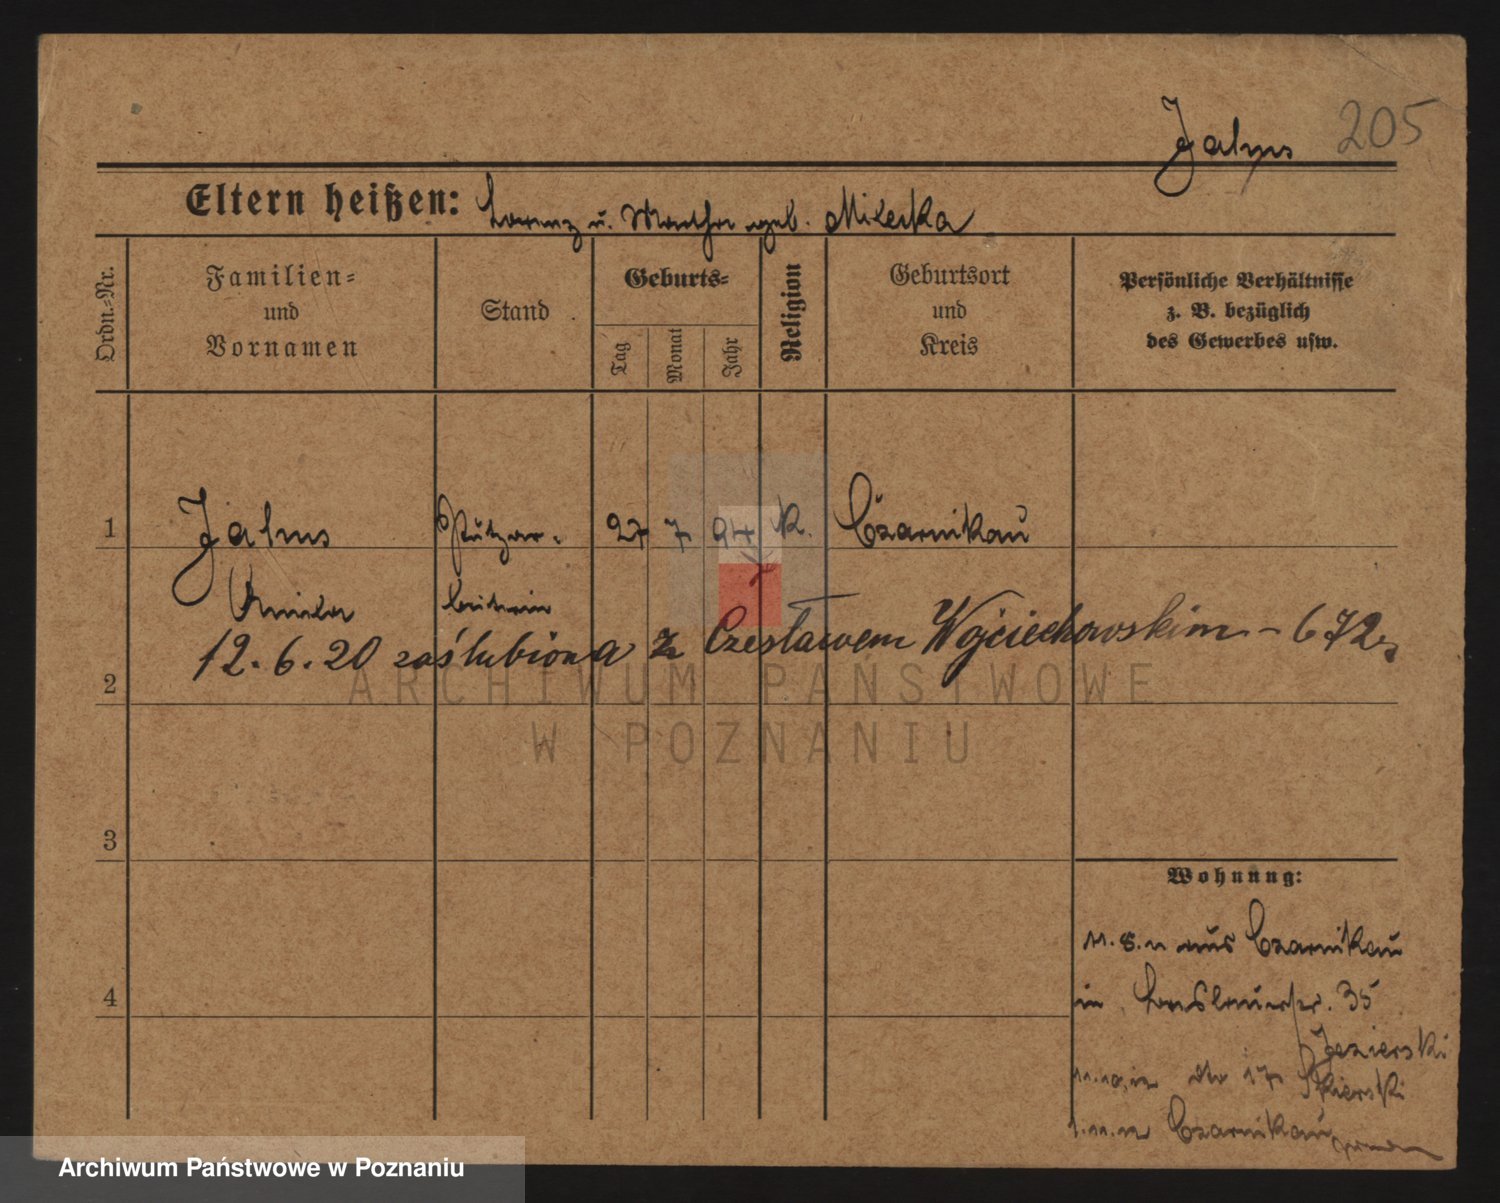 205
Jahns
Eltern heißen: Lorenz u. Martha geb. Milerka
Ordn.-Nr.
Familien-
und
Vornamen
Stand
Geburts-
Tag
Monat
Jahr
Religion
Geburtsort
und
Kreis
Persönliche Verhältnisse
z. B. bezüglich
des Gewerbes usw.
1 Jahns Putzar- 27 7 94 K. Czarnikau
beiterin
12.6.20 zaślubiona z Czesławem Wojciechowskim - 672
2
3
4
Wohnung:
aus Czarnikau
in 35
Jezierski
17 Skierski
Czarnikau
ARCHIWUM PAŃSTWOWE
W POZNANIU
Archiwum Państwowe w Poznaniu